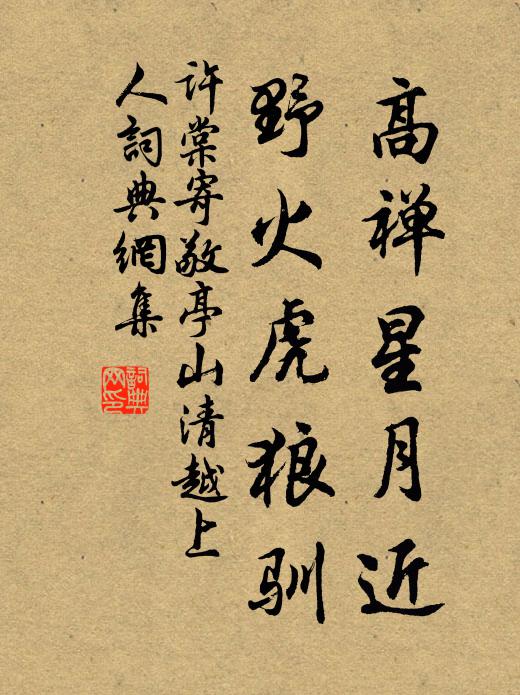 高禅星月近
野火虎狼驯
許棠寄敬亭山清越上
人詞典網集
詞典网印